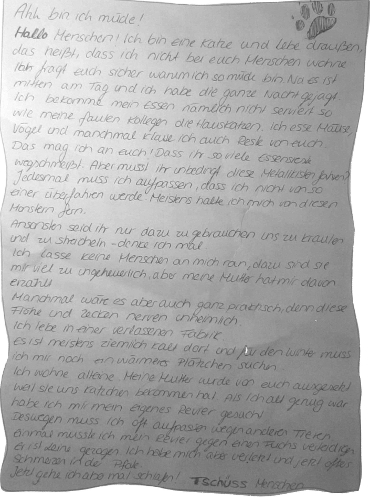 Ahh bin ich müde!
Hallo Menschen! Ich bin eine Katze und lebe draußen,
das heißt, dass ich nicht bei euch Menschen wohne
Ihr fragt euch sicher warum ich so müde bin. Na es ist
mitten am Tag und ich habe die ganze Nacht gejagt.
Ich bekomme mein Essen nämlich nicht serviert so
wie meine faulen Kollegen die Hauskatzen. Ich esse Mäuse,
Vögel und manchmal klaue ich auch Reste von euch.
Das mag ich an euch! Dass ihr so viele Essensreste
wegschmeißt. Aber müsst ihr unbedingt diese Metallkisten fahren?
Jedesmal muss ich aufpassen, dass ich nicht von so
einer überfahren werde. Meistens halte ich mich von diesen
Monstern fern.
Ansonsten seid ihr nur dazu zu gebrauchen uns zu kraulen
und zu streicheln - denke ich mal
Ich lasse keine Menschen an mich ran, dazu sind sie
mir viel zu ungeheuerlich, aber meine Mutter hat mir davon
erzählt
Manchmal wäre es aber auch ganz praktisch, denn diese
Flöhe und Zecken nerven unheimlich.
Ich lebe in einer verlassenen Fabrik.
Es ist meistens ziemlich kalt dort und für den Winter muss
ich mir noch ein wärmeres Plätzchen suchen.
Ich wohne alleine. Meine Mutter wurde von euch ausgesetzt
weil sie uns Kätzchen bekommen hat. Als ich alt genug war
habe ich mir mein eigenes Revier gesucht
Deswegen muss ich oft aufpassen wegen anderen Tieren
einmal musste ich mein Revier gegen einen Fuchs verteidigen
er ist dann gegangen. Ich habe mich aber verletzt und jetzt öfters
Schmerzen in der Pfote.
Jetzt gehe ich aber mal schlafen! Tschüss Menschen